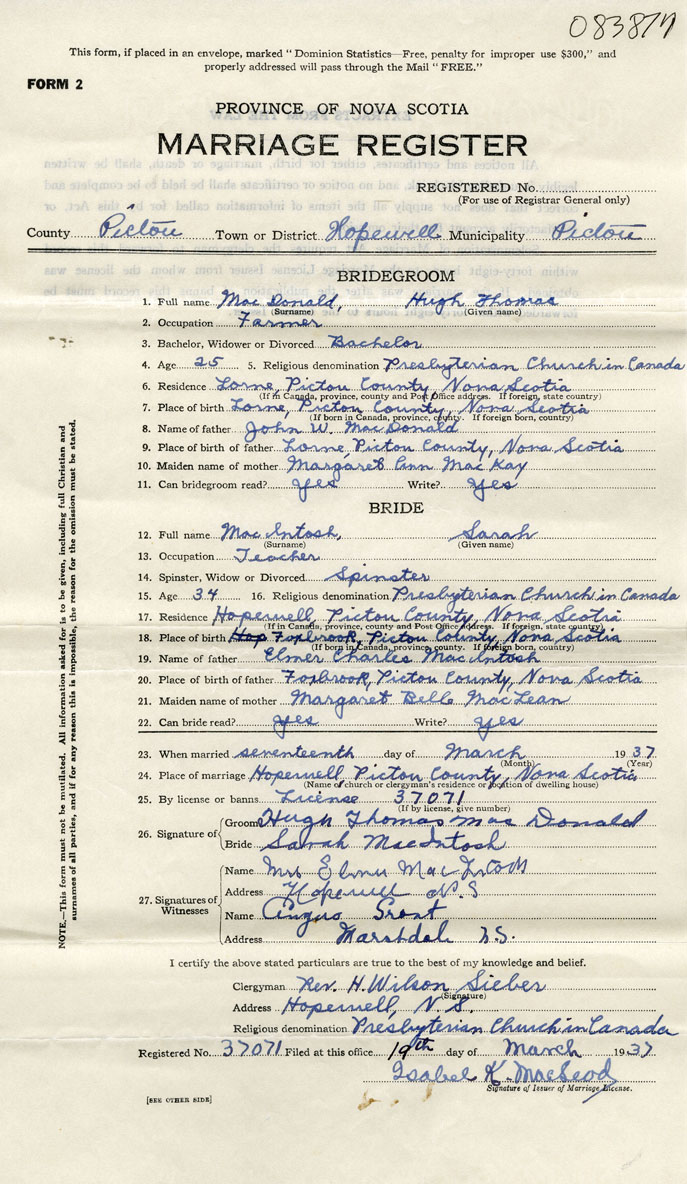 083817
This form, if placed in an envelope, marked "Dominion Statistics—Free, penalty for improper use $300," and
properly addressed will pass through the Mail "FREE."
FORM 2
PROVINCE OF NOVA SCOTIA
MARRIAGE REGISTER
REGISTERED No.
(For use of Registrar General only)
County Pictou Town or District Hopewell Municipality Pictou
BRIDEGROOM
1. Full name MacDonald, Hugh Thomas
(Surname) (Given name)
2. Occupation Farmer
3. Bachelor, Widower or Divorced Bachelor
4. Age 25 5. Religious denomination Presbyterian Church in Canada
6. Residence Lorne, Pictou County, Nova Scotia
(If in Canada, province, county and Post Office address. If foreign, state country)
7. Place of birth Lorne, Pictou County, Nova Scotia
(If born in Canada, province, county. If foreign born, country)
8. Name of father John W. MacDonald
9. Place of birth of father Lorne, Pictou County, Nova Scotia
10. Maiden name of mother Margaret Ann MacKay
11. Can bridegroom read? Yes Write? Yes
BRIDE
12. Full name MacIntosh, Sarah
(Surname) (Given name)
13. Occupation Teacher
14. Spinster, Widow or Divorced Spinster
15. Age 34 16. Religious denomination Presbyterian Church in Canada
17. Residence Hopewell, Pictou County, Nova Scotia
(If in Canada, province, county and Post Office address. If foreign, state country)
18. Place of birth Hop Foxbrook, Pictou County, Nova Scotia
(If born in Canada, province, county. If foreign born, country)
19. Name of father Elmer Charles MacIntosh
20. Place of birth of father Foxbrook, Pictou County, Nova Scotia
21. Maiden name of mother Margaret Belle MacLean
22. Can bride read? Yes Write? Yes
23. When married seventeenth day of March 1937
(Month) (Year)
24. Place of marriage Hopewell, Pictou County, Nova Scotia
(Name of church or clergyman's residence or location of dwelling house)
25. By license or banns License 37071
(If by license, give number)
26. Signature of
Groom Hugh Thomas MacDonald
Bride Sarah MacIntosh
27. Signatures of Witnesses
Name Mrs Elmer MacIntosh
Address Hopewell N.S
Name Angus Grant
Address Marshdale N.S.
I certify the above stated particulars are true to the best of my knowledge and belief.
Clergyman Rev. H. Wilson Sieber
(Signature)
Address Hopewell, N.S.
Religious denomination Presbyterian Church in Canada
Registered No. 37071 Filed at this office 19th day of March 1937
Isabel K. MacLeod
Signature of Issuer of Marriage License.
[SEE OTHER SIDE]
NOTE.—This form must not be mutilated. All information asked for is to be given, including full Christian and
surnames of all parties, and if for any reason this is impossible, the reason for the omission must be stated.